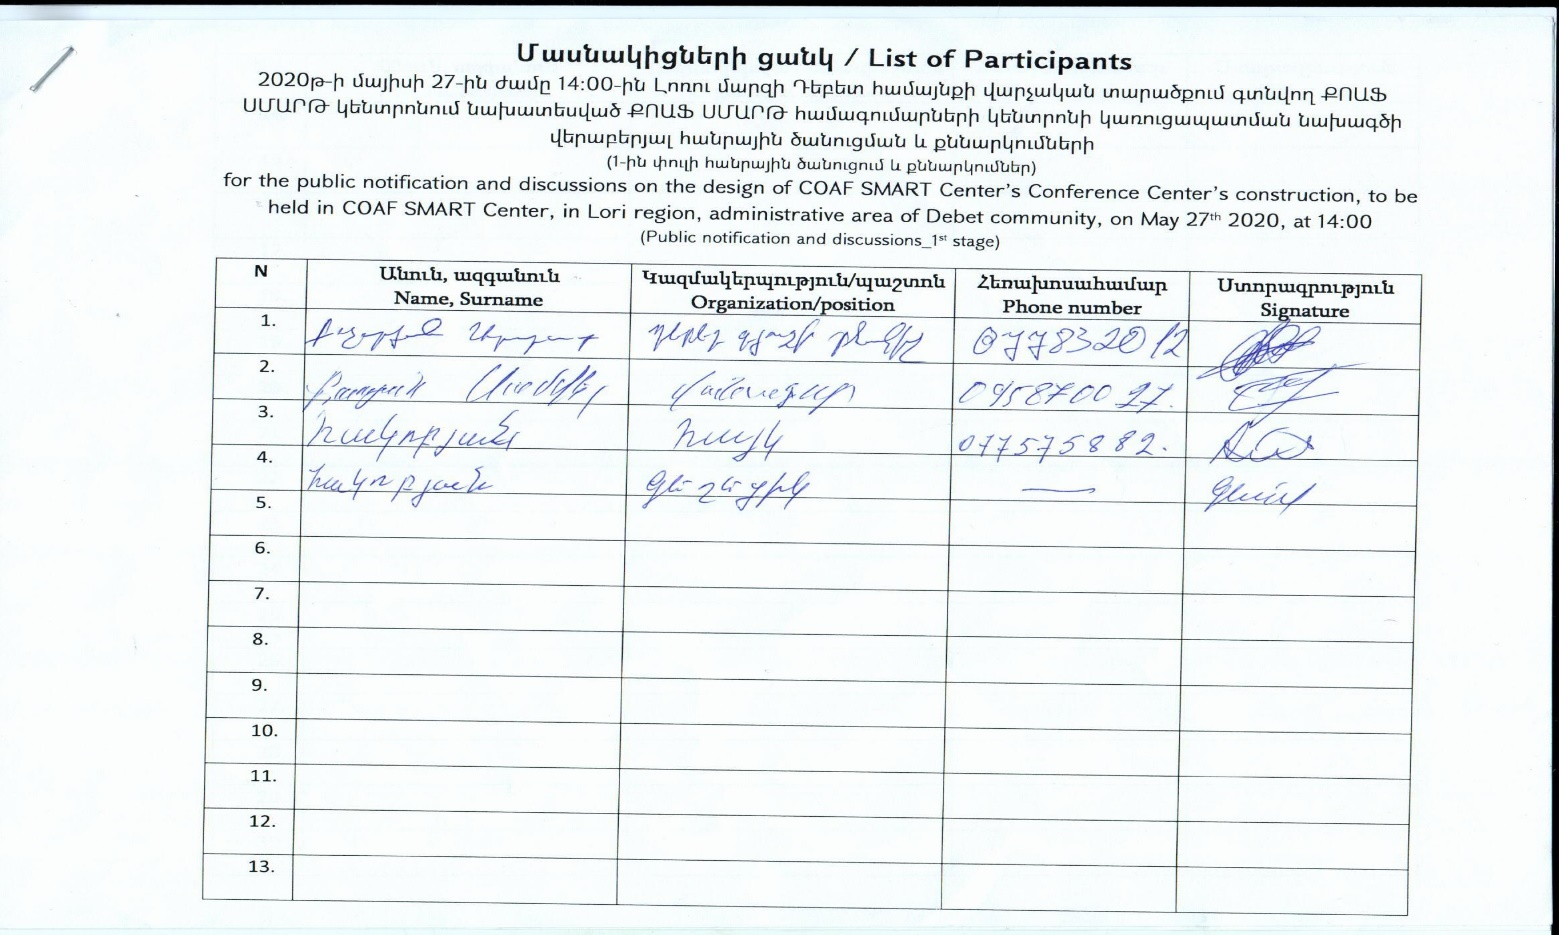 Մասնակիցների ցանկ / List of Participants
2020թ-ի մայիսի 27-ին ժամը 14:00-ին Լոռու մարզի Դեբետ համայնքի վարչական տարածքում գտնվող ՔՈԱՖ
ՍՄԱՐԹ կենտրոնում նախատեսված ՔՈԱՖ ՍՄԱՐԹ համագումարների կենտրոնի կառուցապատման նախագծի
վերաբերյալ հանրային ծանուցման և քննարկումների
(1-ին փուլի հանրային ծանուցում և քննարկումներ)
for the public notification and discussions on the design of COAF SMART Center's Conference Center's construction, to be
held in COAF SMART Center, in Lori region, administrative area of Debet community, on May 27th 2020, at 14:00
(Public notification and discussions_1st stage)
N Անուն, ազգանուն Կազմակերպություն/պաշտոն Հեռախոսահամար Ստորագրություն
Name, Surname Organization/position Phone number Signature
1. 077832012
2. 095870027.
3. Հակոբյան Հայկ 077575882.
4. Հակոբյան Գեղեցիկ —
5.
6.
7.
8.
9.
10.
11.
12.
13.